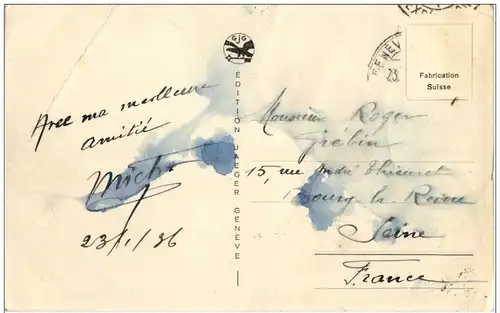 Avec ma meilleure
amitié
Mich
23/1/36
GJG
ÉDITION JAEGER GENÈVE
GENÈVE
23.
Fabrication
Suisse
Monsieur Roger
Grébin
15, rue André Theuriet
Bourg-la-Reine
Seine
France